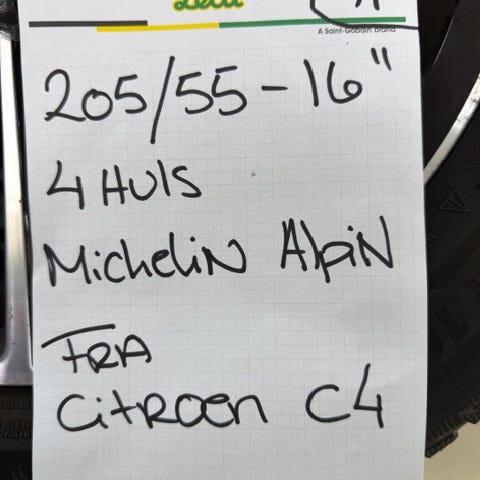 A Saint-Gobain brand
205/55-16"
4 HULS
Michelin Alpin
FRA
Citroen C4